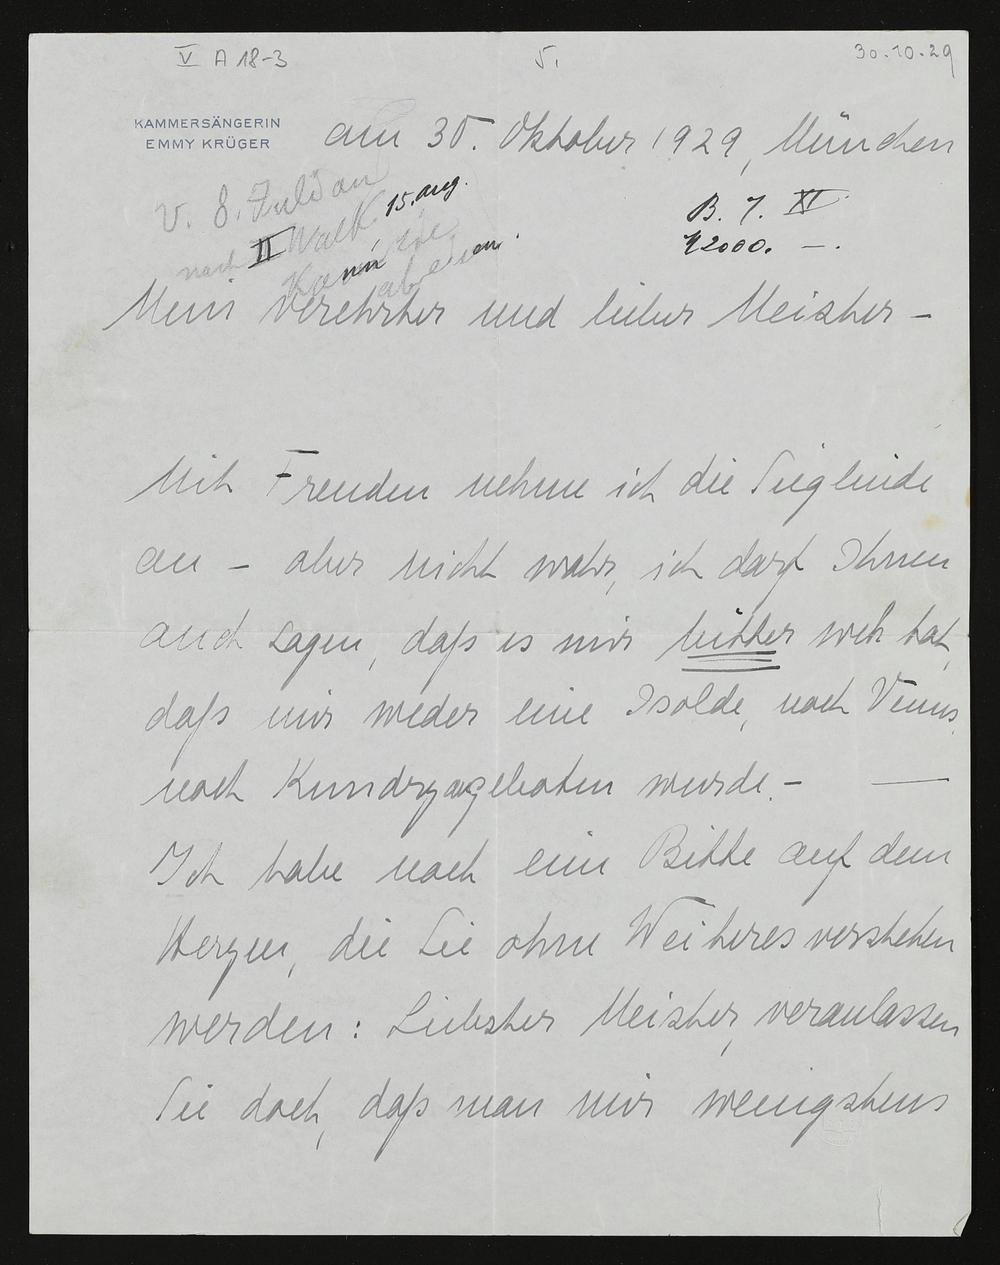 V A 18-3
5.
30.10.29
KAMMERSÄNGERIN
EMMY KRÜGER
am 30. Oktober 1929, München
v. 8. Juli an
15. aug.
B. 7. XI.
M 2000. –.
nach II Walk
kann sie
abreisen.
Mein verehrter und lieber Meister –
Mit Freuden nehme ich die Sieglinde
an – aber nicht wahr, ich darf Ihnen
auch sagen, daß es mir bitter weh tat,
daß mir weder eine Isolde, noch Venus,
noch Kundry angeboten wurde. – —
Ich habe noch eine Bitte auf dem
Herzen, die Sie ohne Weiteres verstehen
werden: Liebster Meister, veranlassen
Sie doch, daß man mir wenigstens